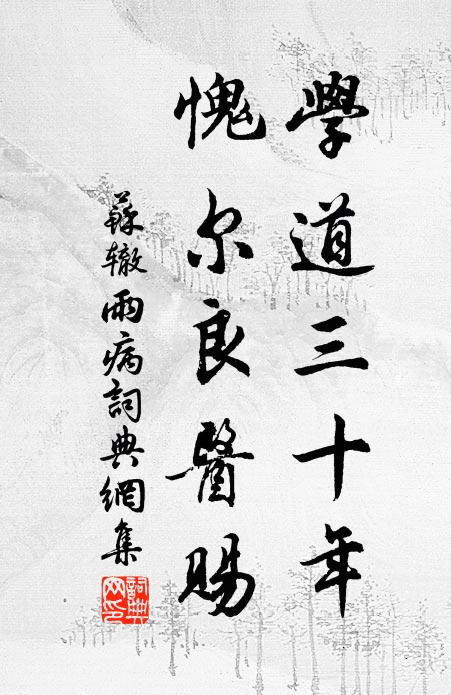 學道三十年
愧尔良醫賜
蘇辙雨病詞典網集
詞典网印